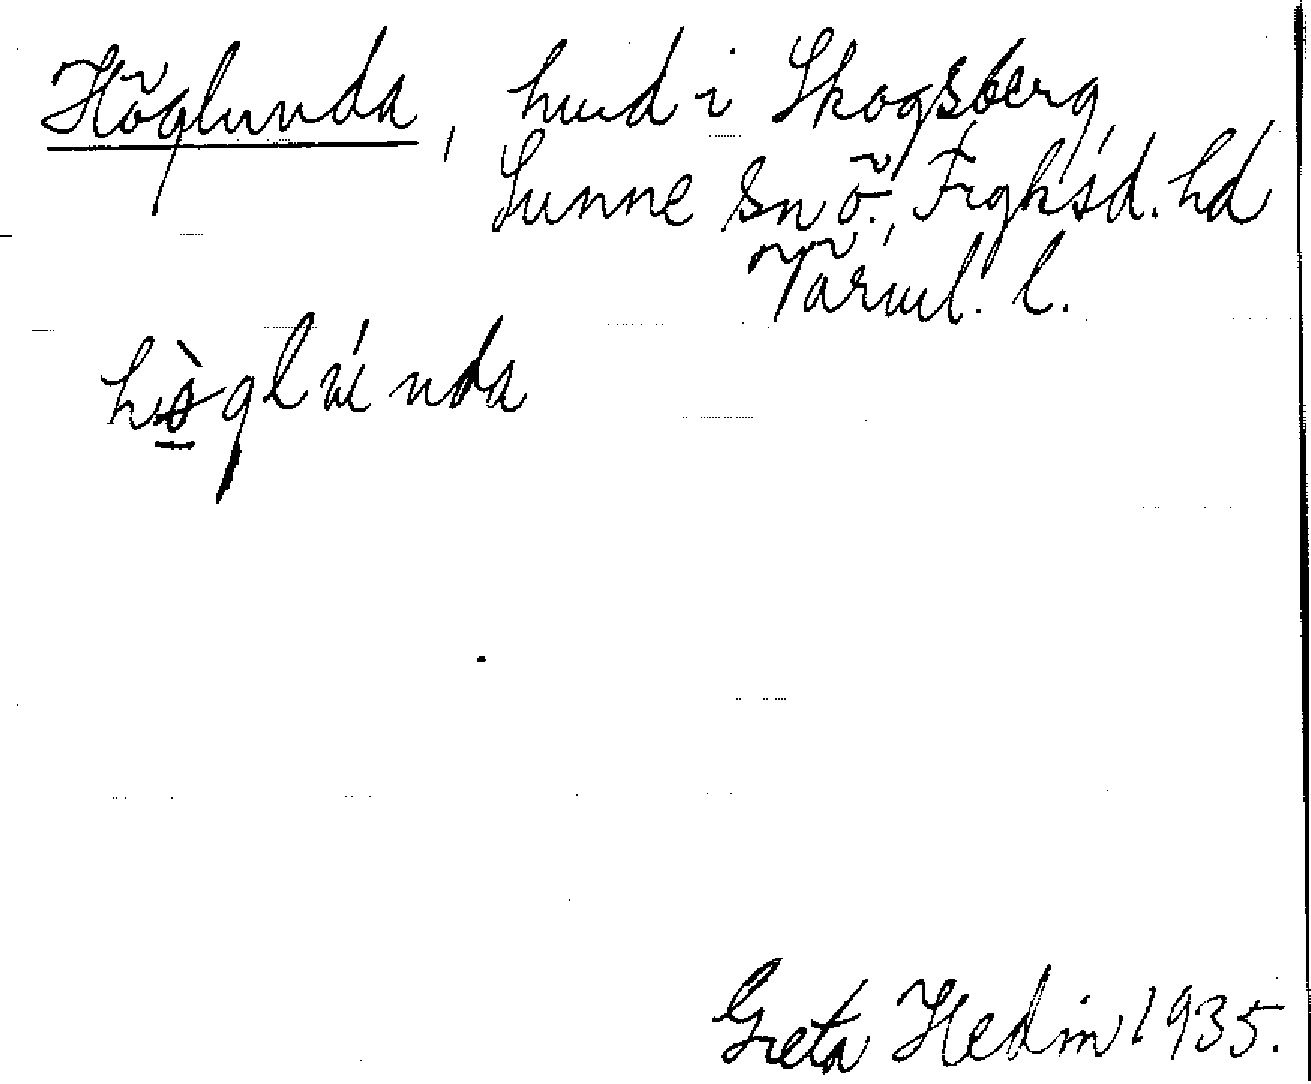 Höglunda, hmd i Skogsberg,
Sunne sn ö., Frykssd. hd
Värml. l.
hö̀glúnda
Greta Hedin 1935.